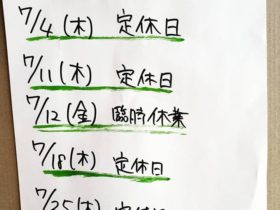 7/4(木) 定休日
7/11(木) 定休日
7/12(金) 臨時休業
7/18(木) 定休日
7/25(木) 定休日